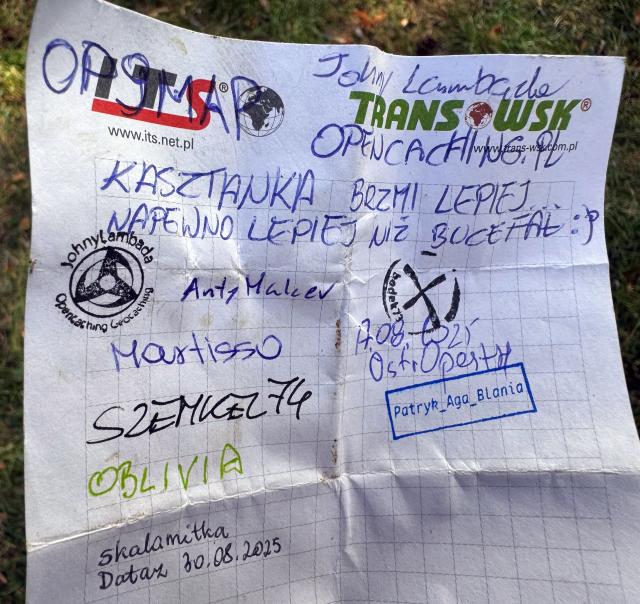 OP9MAP
ITS®
www.its.net.pl
John Lambada
TRANS WSK®
www.trans-wsk.com.pl
OPENCACHING.PL
KASZTANKA BRZMI LEPIEJ...
NAPEWNO LEPIEJ NIŻ BUCEFAŁ :P
JohnyLambada
Opencaching Geocaching
Marfisso
17.08.2025
SZEMKEL74
Patryk_Aga_Blania
OBLIVIA
Skalamitka
Dataz 30.08.2025